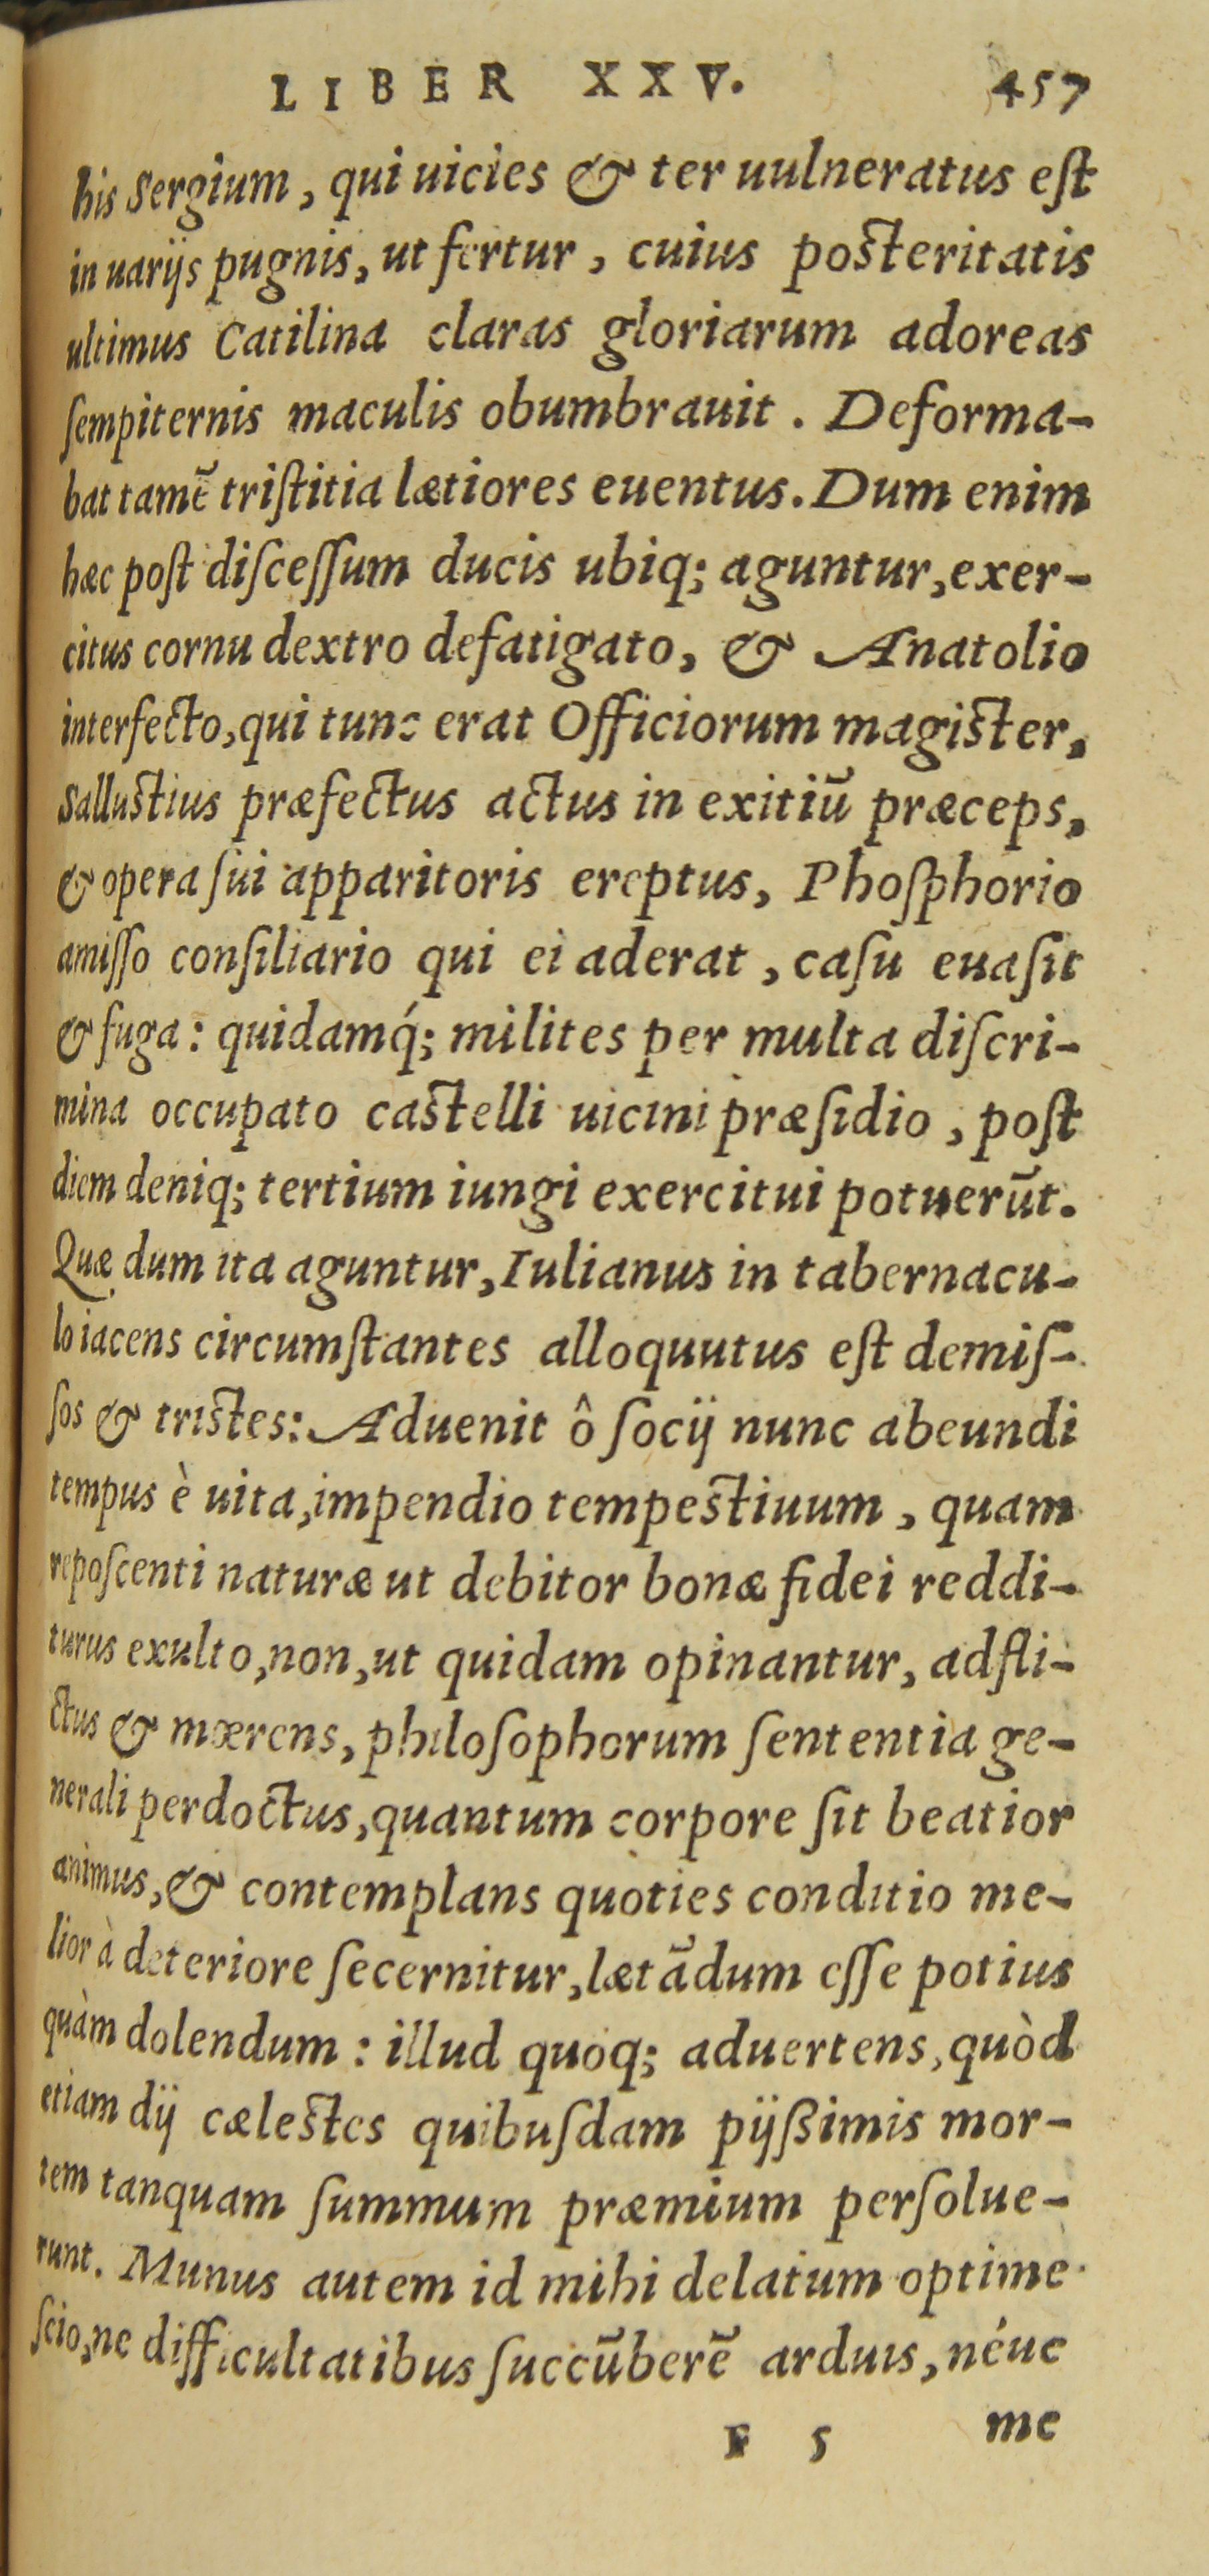 LIBER XXV. 457
his Sergium, qui uicies & ter uulneratus eſt
in uarijs pugnis, ut fertur, cuius posteritatis
ultimus Catilina claras gloriarum adoreas
ſempiternis maculis obumbrauit. Deforma-
bat tamē triſtitia lætiores euentus. Dum enim
hæc poſt diſceſſum ducis ubiq; aguntur, exer-
citus cornu dextro defatigato, & Anatolio
interfecto, qui tunc erat Officiorum magister,
Sallustius præfectus actus in exitiū præceps,
& opera ſui apparitoris ereptus, Phoſphorio
amiſſo conſiliario qui ei aderat, caſu euaſit
& fuga: quidamq́; milites per multa diſcri-
mina occupato castelli uicini præſidio, poſt
diem deniq; tertium iungi exercitui potuerūt.
Quæ dum ita aguntur, Iulianus in tabernacu-
lo iacens circumſtantes alloquutus eſt demiſ-
ſos & tristes: Aduenit ô ſocij nunc abeundi
tempus è uita, impendio tempestiuum, quam
repoſcenti naturæ ut debitor bonæ fidei reddi-
turus exulto, non, ut quidam opinantur, adfli-
ctus & mœrens, philoſophorum ſententia ge-
nerali perdoctus, quantum corpore ſit beatior
animus, & contemplans quoties conditio me-
lior à deteriore ſecernitur, lætādum eſſe potius
quàm dolendum: illud quoq; aduertens, quòd
etiam dij cælestes quibuſdam pijßimis mor-
tem tanquam ſummum præmium perſolue-
runt. Munus autem id mihi delatum optime
ſcio, ne difficultatibus ſuccūberē arduis, néue
F 5 me